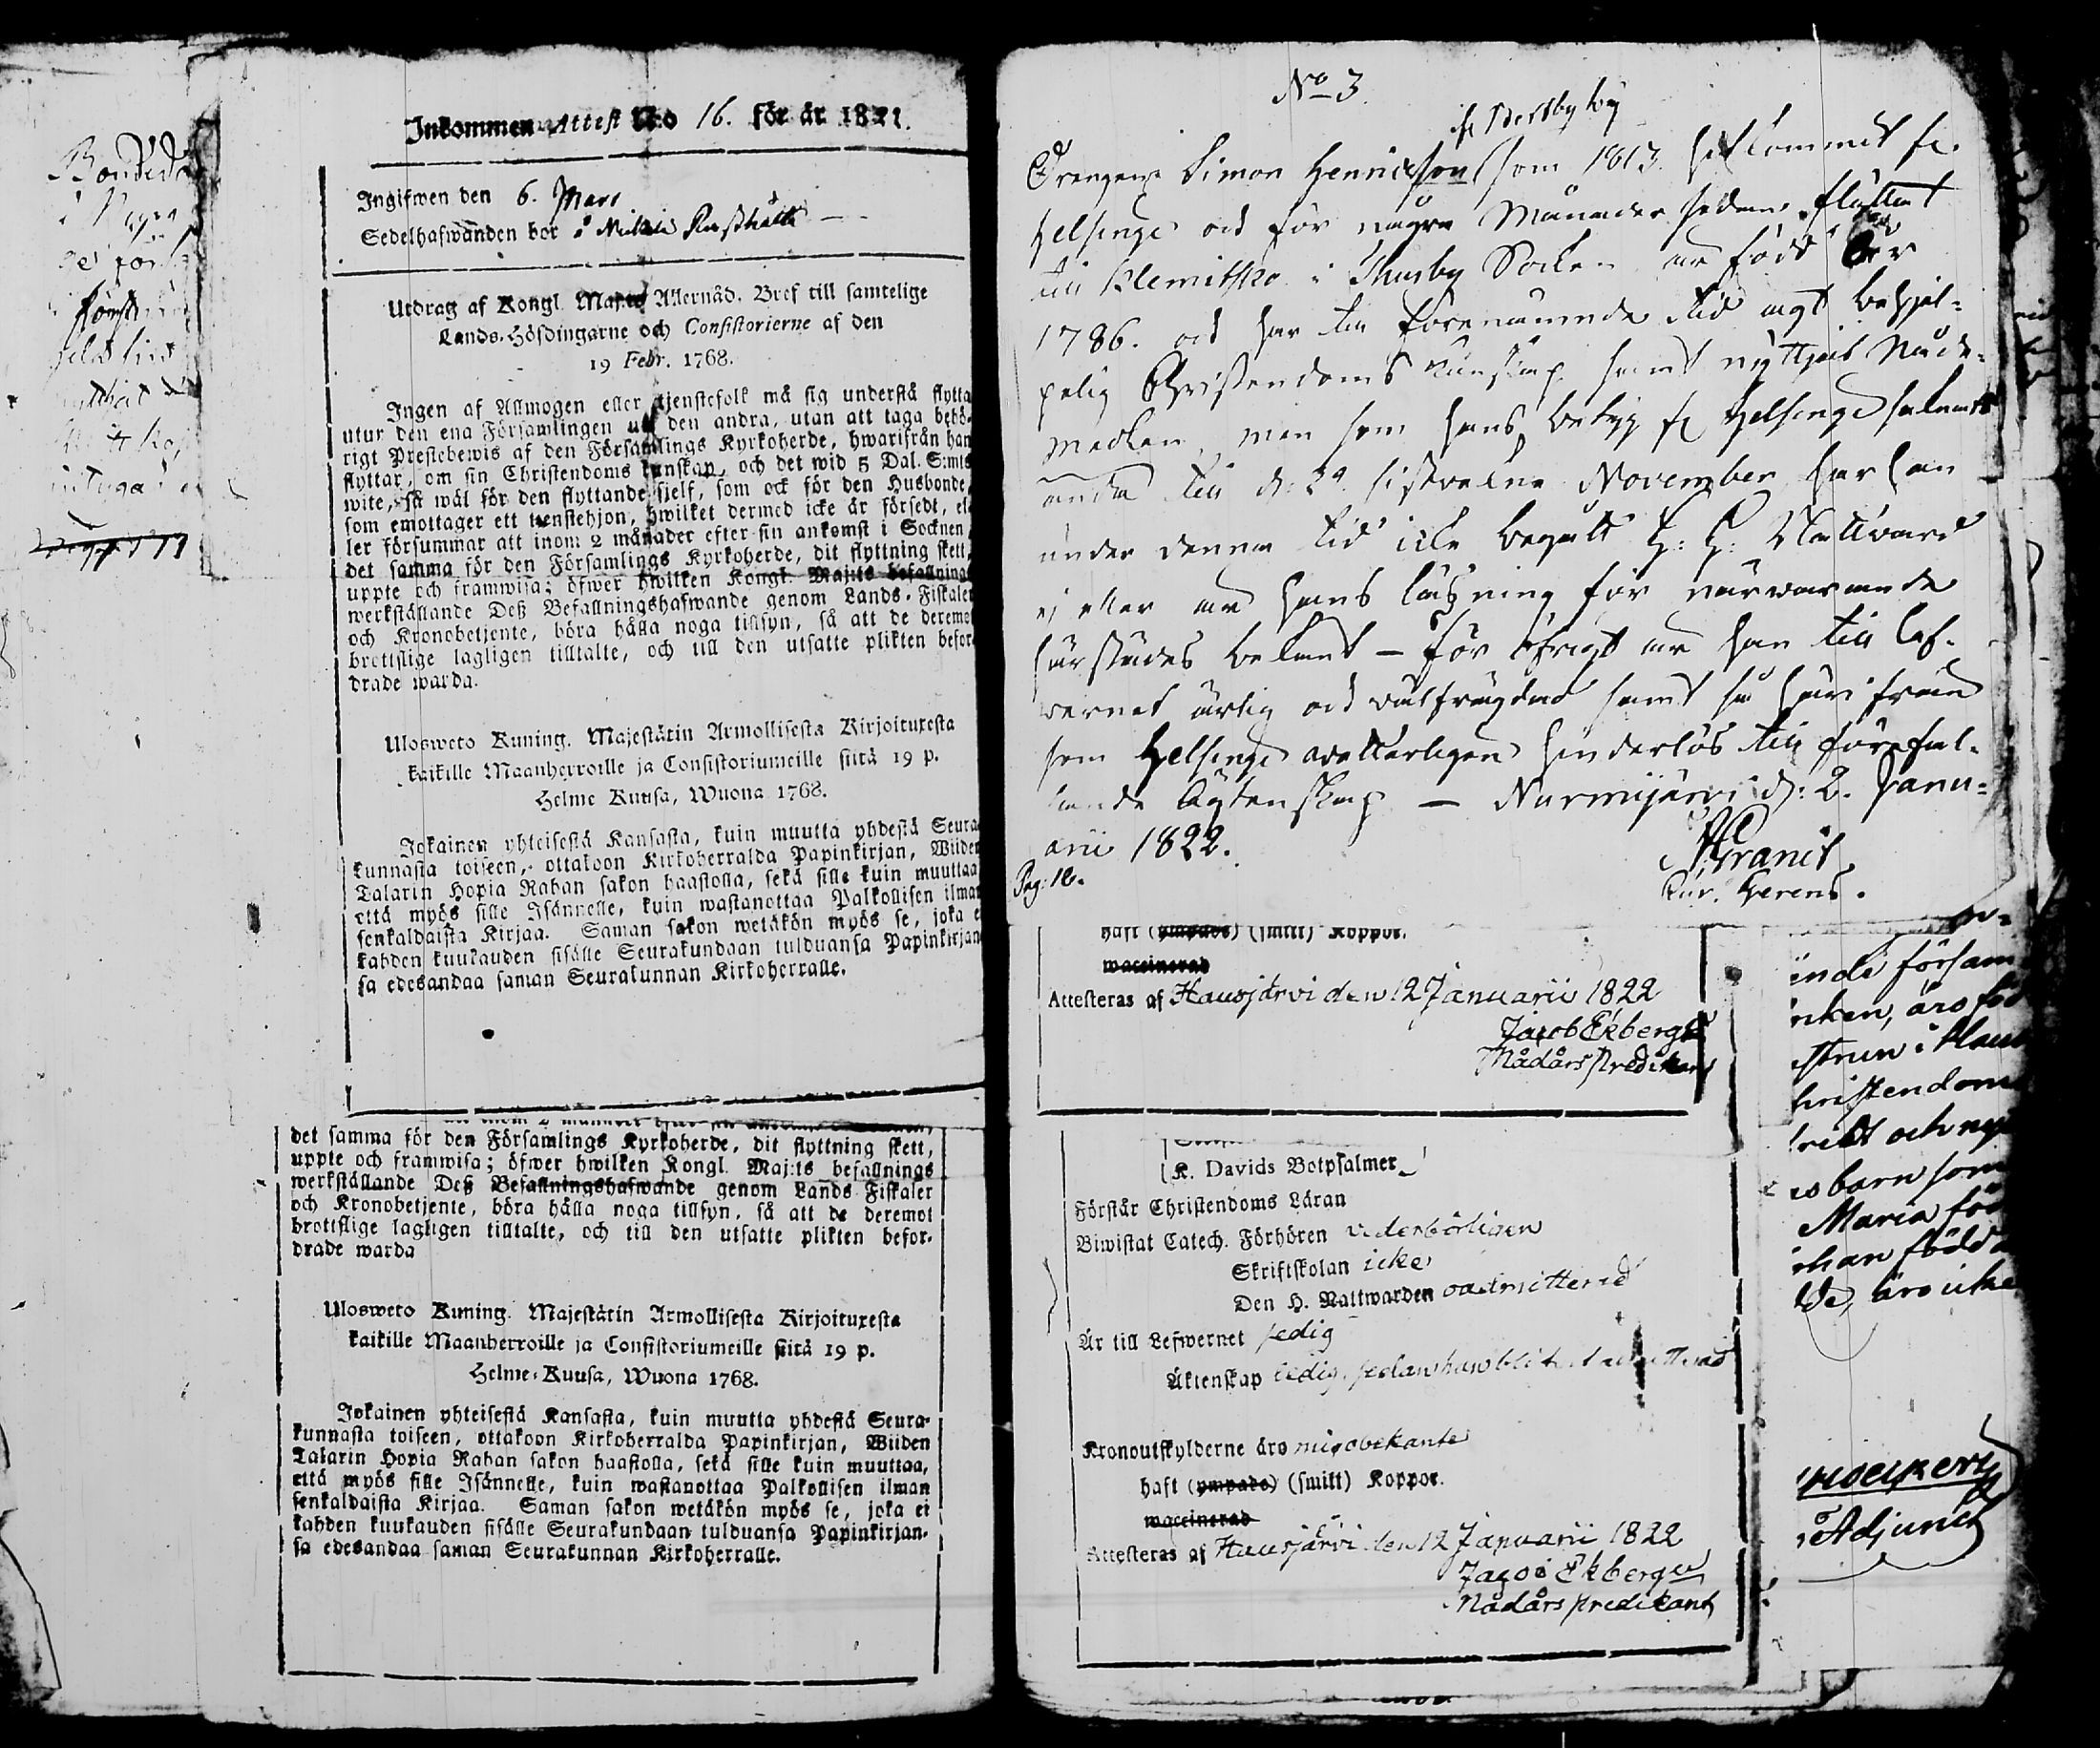 Inkommen Attest N:o 16. för år 1822.
Ingifwen den 6. Mars
Sedelhafwanden bor å
Utdrag af Kongl. Maj:ts Allernåd. Bref till samtelige
Lands-Höfdingarne och Consistorierne af den
19 Febr. 1768.
Ingen af Allmogen eller tjenstefolk må sig understå flytta
utur den ena Församlingen uti den andra, utan att taga behö-
rigt Prestebewis af den Församlings Kyrkoherde, hwarifrån han
flyttar, om sin Christendoms kunskap, och det wid 5 Dal. S:mts
wite, så wäl för den flyttande sjelf, som ock för den Husbonde,
som emottager ett tienstehjon, hwilket dermed icke är försedt, el-
ler försummar att inom 2 månader efter sin ankomst i Socknen,
det samma för den Församlings Kyrkoherde, dit flyttning skett,
uppte och framwisa; öfwer hwilken Kongl. Maj:ts befallnings
werkställande Deß Befallningshafwande genom Lands-Fiskaler
och Kronobetjente, böra hålla noga tillsyn, så att de deremot
brottslige lagligen tilltalte, och till den utsatte plikten befor-
drade warda.
Ulosweto Kuning. Majestätin Armollisesta Kirjoituxesta
kaikille Maanherroille ja Consistoriumeille siitä 19 p.
Helme Kuusa, Wuona 1768.
Jokainen yhteisestä Kansasta, kuin muutta yhdestä Seura-
kunnasta toiseen, ottakoon Kirkoherralda Papinkirjan, Wiiden
Talarin Hopia Rahan sakon haastolla, sekä sille kuin muuttaa,
että myös sille Isännelle, kuin wastanottaa Palkollisen ilman
senkaldaista Kirjaa. Saman sakon wetäkön myös se, joka ei
kahden kuukauden sisälle Seurakundaan tulduansa Papinkirjan-
sa edesandaa saman Seurakunnan Kirkoherralle.
det samma för den Församlings Kyrkoherde, dit flyttning skett,
uppte och framwisa; öfwer hwilken Kongl. Maj:ts befallnings
werkställande Deß Befallningshafwande genom Lands Fiskaler
och Kronobetjente, böra hälla noga tillsyn, så att de deremot
brottslige lagligen tilltalte, och till den utsatte plikten befor-
drade warda
Ulosweto Kuning. Majestätin Armollisesta Kirjoituxesta
kaikille Maanherroille ja Consistoriumeille siitä 19 p.
Helme-Kuusa, Wuona 1768.
Jokainen yhteisestä Kansasta, kuin muutta yhdestä Seura-
kunnasta toiseen, ottakoon Kirkoherralda Papinkirjan, Wiiden
Talarin Hopia Rahan sakon haastolla, sekä sille kuin muuttaa,
että myös sille Isännelle, kuin wastanottaa Palkollisen ilman
senkaldaista Kirjaa. Saman sakon wetäkön myös se, joka ei
kahden kuukauden sisälle Seurakundaan tulduansa Papinkirjan-
sa edesandaa saman Seurakunnan Kirkoherralle.
No 3.
Drengen Simon Henricsson som 1813 hitkommit fr.
Helsinge och för några Månader sedan flyttat
till Klemitsko i Thusby Socken är född
1786. och har till förenämnde tid ägt behjel-
pelig Christendoms kunskap samt nyttjat Nåde-
medlen, men som hans betyg fr Helsinge saknats
ända till d: 29 sistvekne November har han
under denna tid icke begått H: H: Nattvard
ej eller är hans läsning för närvarande
härstädes bekant – för öfrigt är han till lef-
vernet ärlig och välfrägdad samt så härifrån
som Helsinge hinderlös till förefal-
lande Ägtenskap — Nurmijärvi d: 2. Janu-
arii 1822.
Granit
Pag: 16.
haft (ympade) (smitt) Koppor.
waccinerad
Attesteras af Hausjärvi den 12 Januarii 1822
Jacob Ekberg
Nådårs Predikant
K. Davids Botpsalmer
Förstår Christendoms Läran
Biwistat Catech. Förhören vederbörligen
Skriftskolan icke
Den H. Nattwarden oadmitterad
Är till Lefwernet sedig
Äktenskap ledig, sedan han blifvit admitterad
Kronoutskylderne äro mig obekante
haft (ympade) (smitt) Koppor.
waccinerad
Attesteras af Hausjärvi den 12 Januarii 1822
Jacob Ekberg
Nådårs predikant
församl
Christendom
och
barn som
Maria föd
född
äro icke
Adjunct